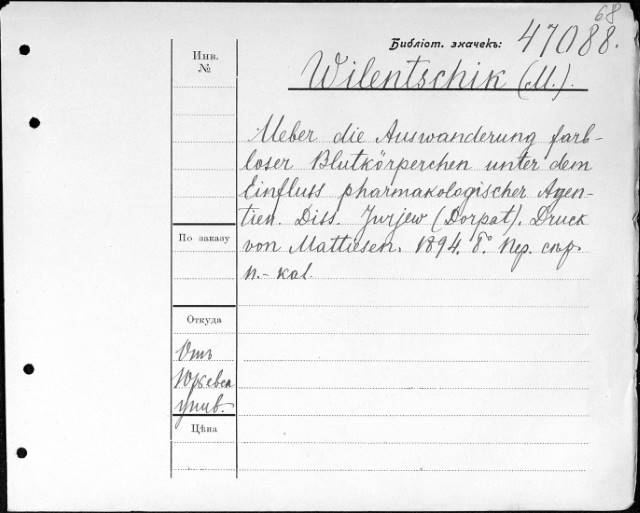 68
Библіот. значекъ: 47088.
Инв.
№
Wilentschik (M.).
Ueber die Auswanderung farb-
loser Blutkörperchen unter dem
Einfluss pharmakologischer Agen-
tien. Diss. Jurjew (Dorpat). Druck
По заказу
von Mattiesen. 1894. 8°. Пер. скр.
н.-кол.
Откуда
Отъ
Юрьевск
унив.
Цѣна